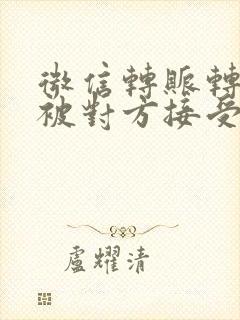 微信轉賬轉
被對方接受
盧耀清